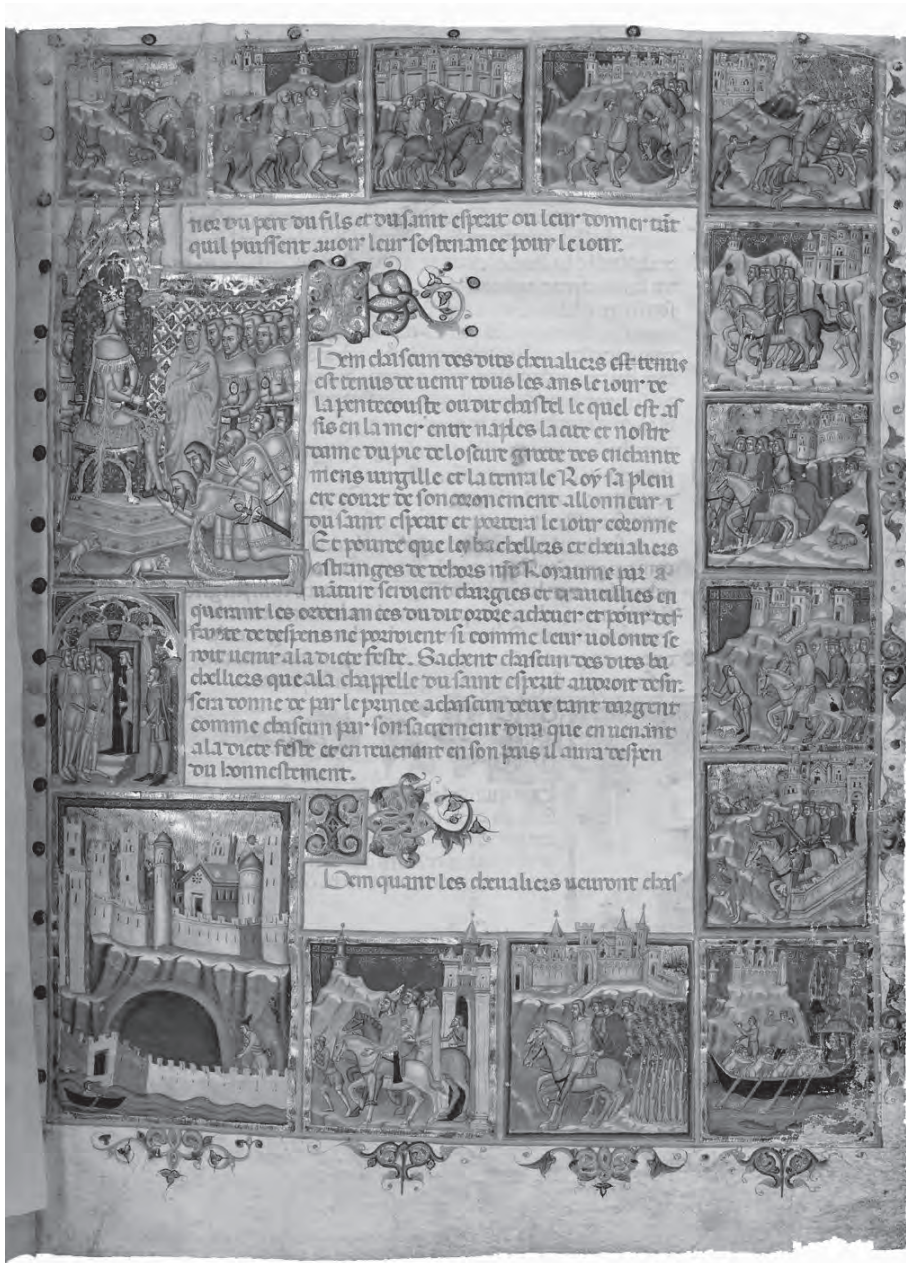 ner du pere du fils et du saint esperit ou leur donner tāt
quil puissent auoir leur sostenance pour le iour.
Item chascun des dits cheualiers est tenus
est tenus de uenir tous les ans le iour de
la pentecouste ou dit chastel le quel est as
sis en la mer entre naples la cite et nostre
dame du pie de la oscure grote des enchante
mens uirgille et la tenra le Roy sa plein
ere court de son coronement allonneur
du saint esperit et portera le iour coronne
Et pource que les bachellers et cheualiers
estranges de dehors nře Royaume par a
uāture seroient chargies et trauellies en
querant les ordenances du dit ordre acheuer et pour def
faute de despens ne porroient si comme leur uolonte se
roit uenir a la dicte feste. Sachent chascun des dits ba
chelliers que a la chappelle du saint esperit
sera donne de par le prince a chascun deux tant dargent
comme chascun par son sacrement dira que en uenant
a la dicte feste et en reuenant en son pais il aura despen
du honnestement.
Item quant les cheualiers uenront chas